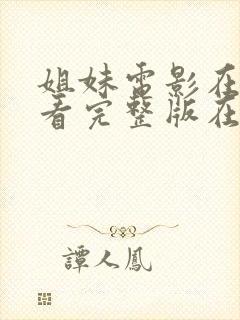 姐妹电影在
看完整版在
譚人鳳